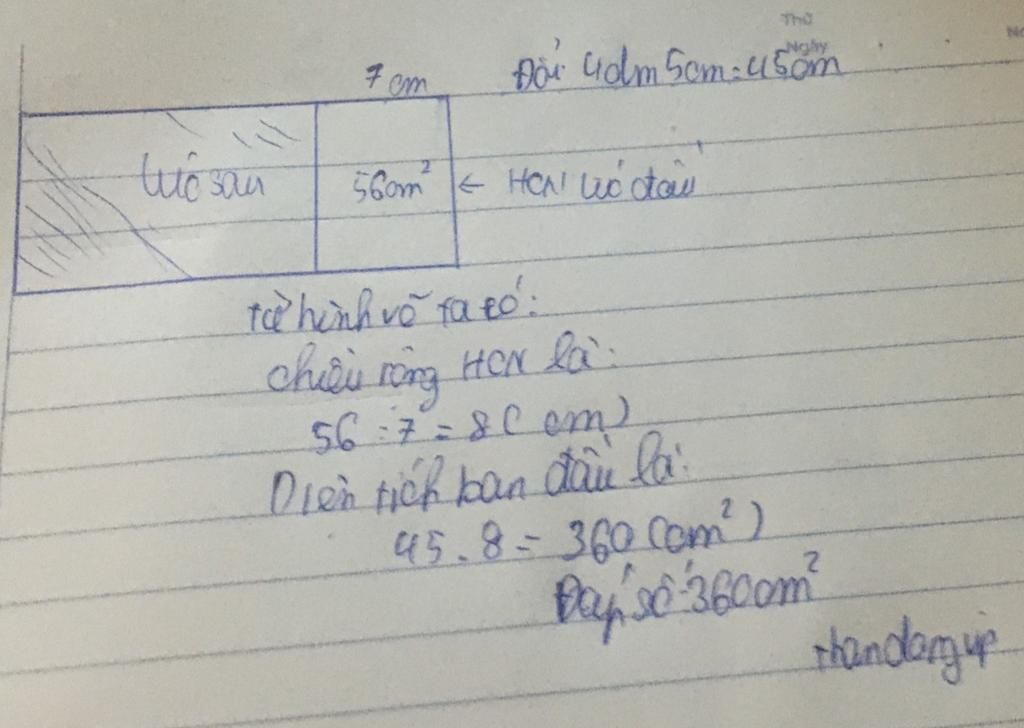 Thứ
Ngày
No
7cm
Đổi 4dm 5cm = 45cm
lúc sau
56cm²
← HCN lúc đầu
Từ hình vẽ ta có:
chiều rộng HCN là:
56 : 7 = 8 ( cm )
Diện tích ban đầu là:
45 . 8 = 360 (cm²)
Đáp số: 360cm²